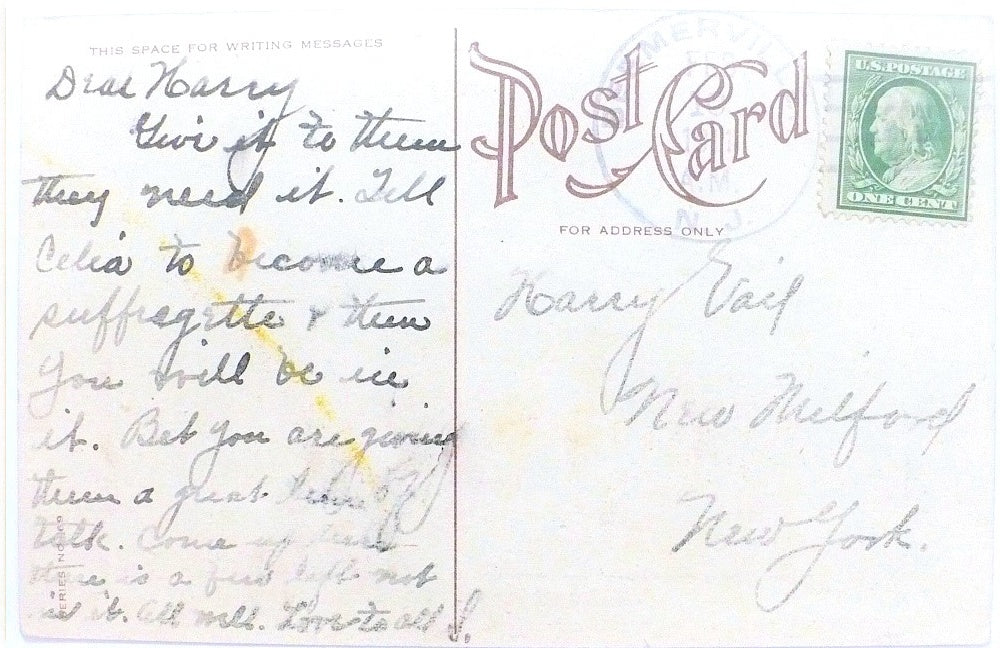 THIS SPACE FOR WRITING MESSAGES
Dear Harry
Give it to them
they need it. Tell
Celia to become a
suffragette & then
you will be in
it. Bet you are giving
them a great line of
talk. Come up here
there is a few left not
in it. All well. Love to all J.
SERIES NO.
Post Card
FOR ADDRESS ONLY
A.M.
N.J.
U.S. POSTAGE
ONE CENT
Harry Vail
New Milford
New York.